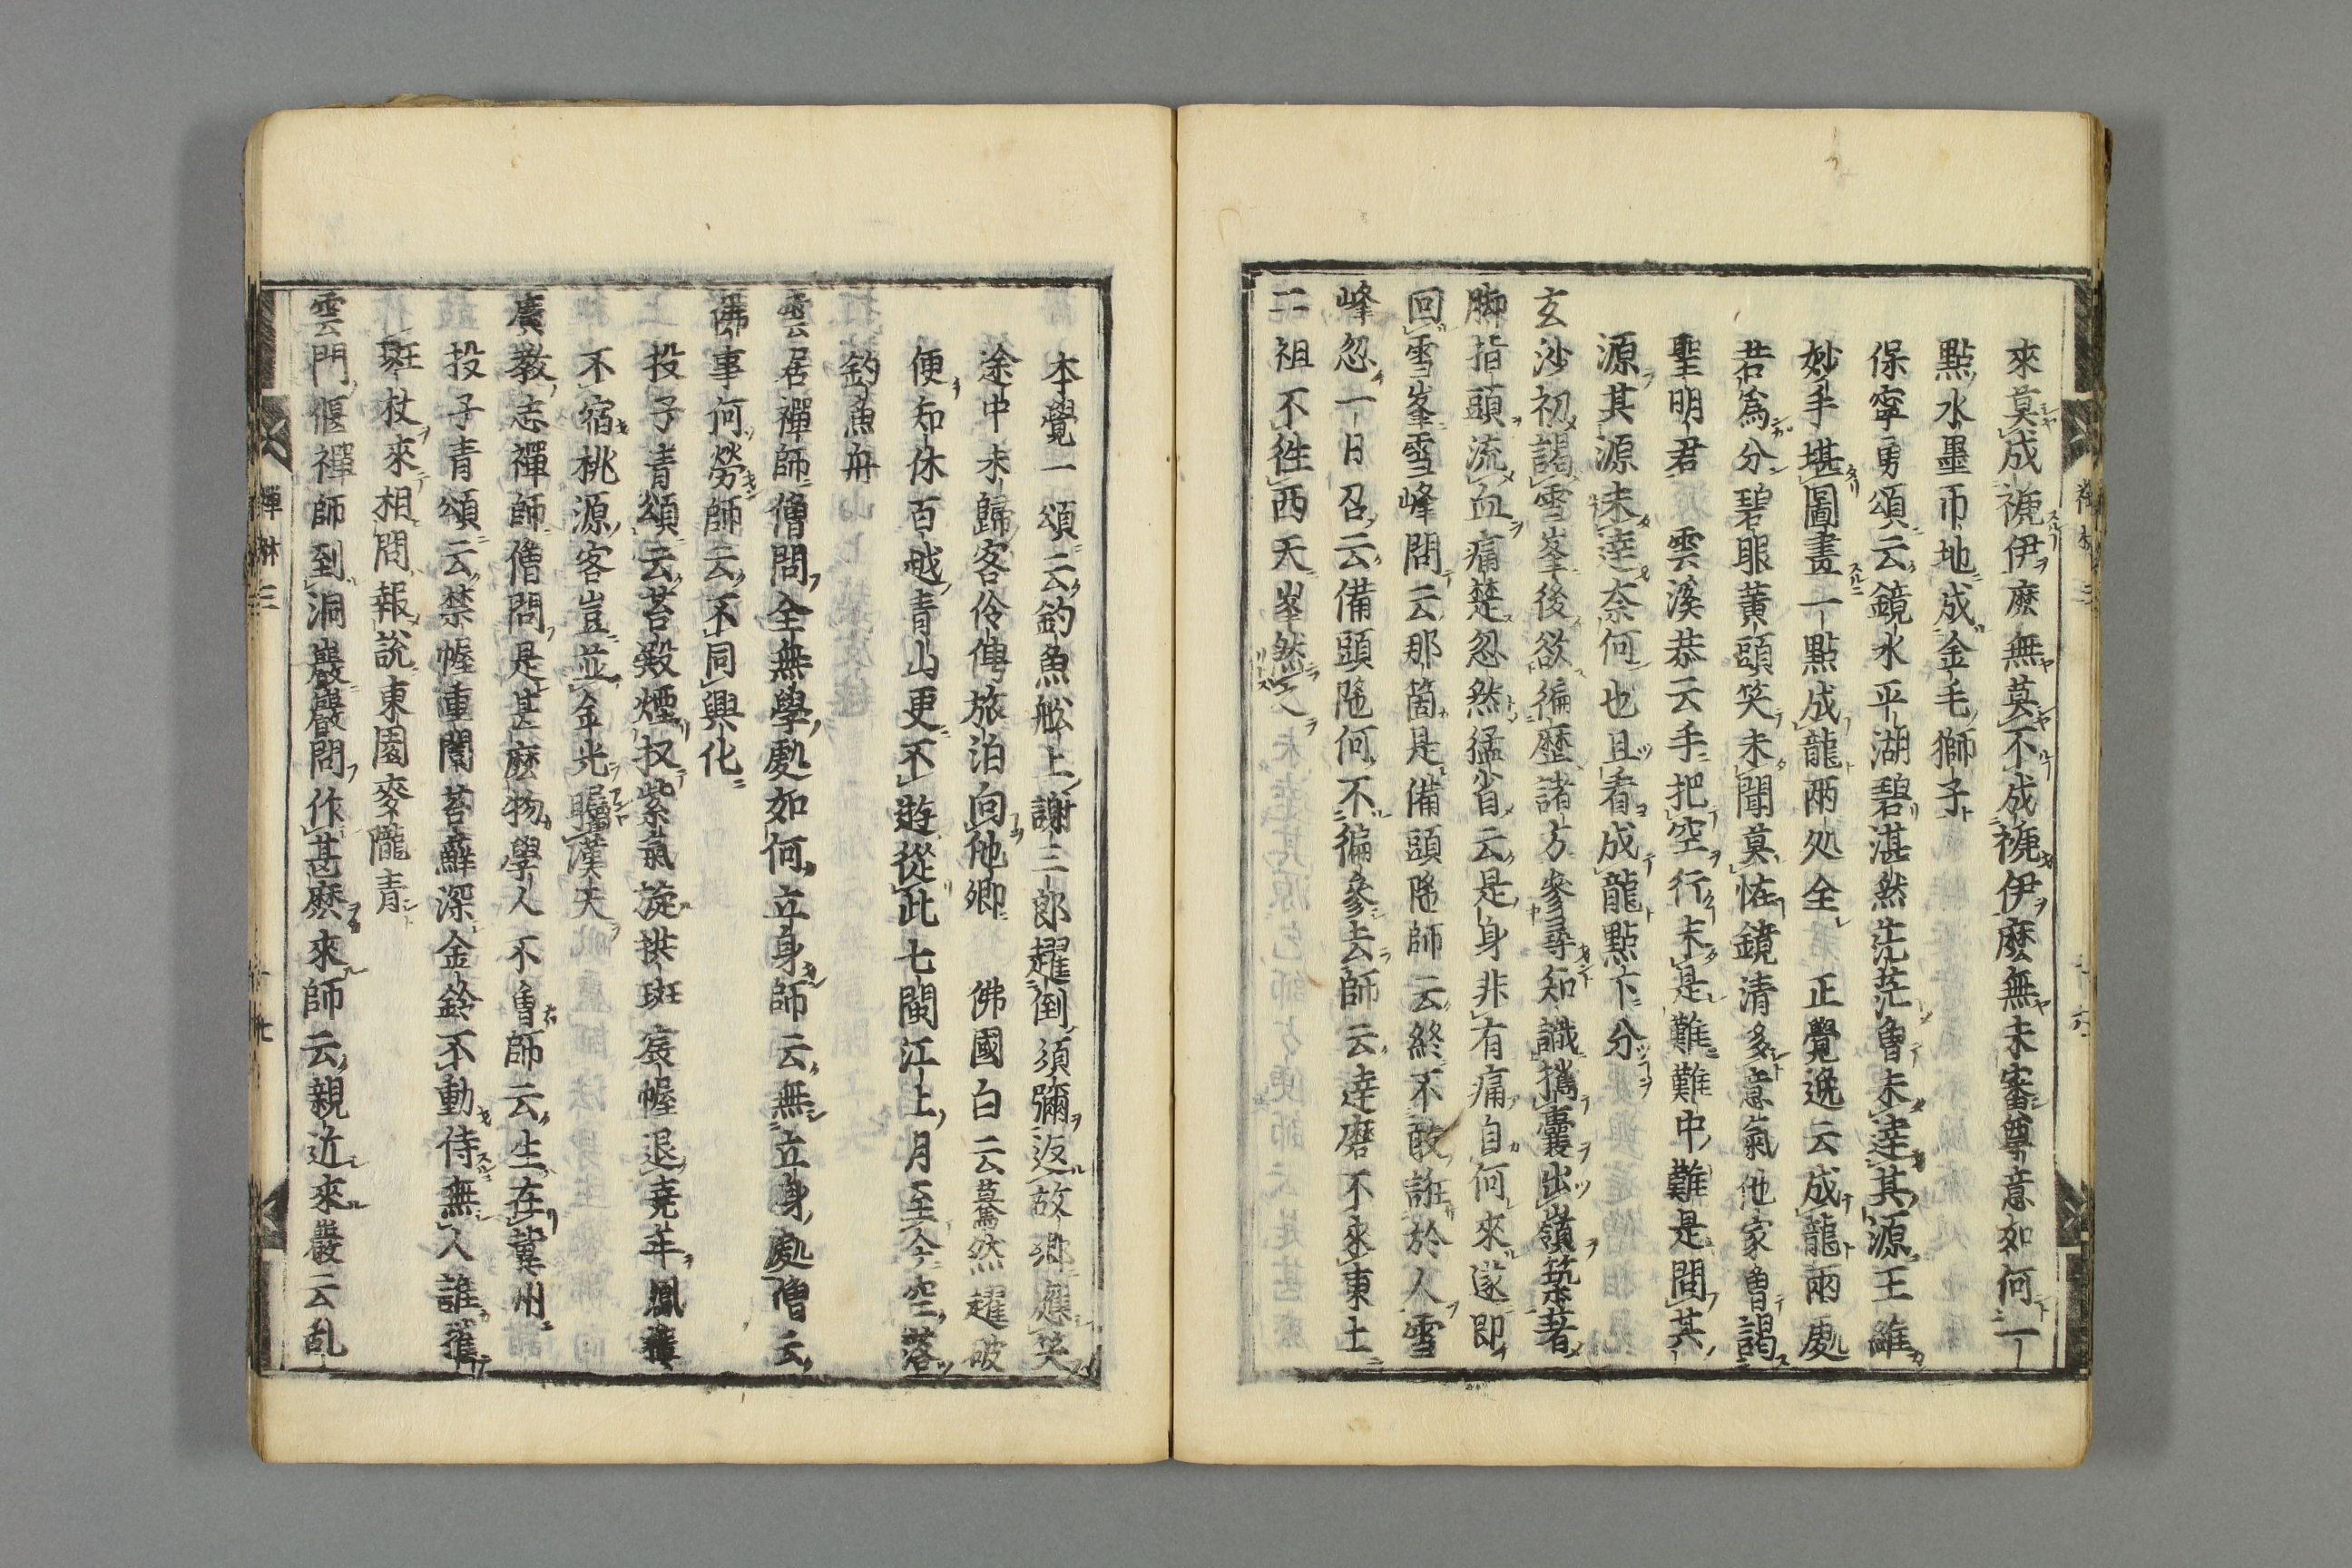 來莫成褫伊麽無莫不成褫伊麽無未審尊意如何一
點水墨帀地成金毛獅子
保寧勇頌云鏡水平湖碧湛然茫茫魯未達其源王維
妙手堪圖畫一點成龍兩処全　正覺逸云成龍兩處
若爲分碧眼黃頭笑未聞莫怪鏡清多意氣他家曾謁
聖明君　雲溪恭云手把空行未是難難中難是問其
源其源未達奈何也且看成龍點下分
玄沙初謁雪峯後欲徧歷諸方參尋知識携囊出嶺築著
脚指頭流血痛楚忽然猛省云是身非有痛自何來遂即
回雪峯雪峰問云那箇是備頭陁師云終不敢誑於人雪
峰忽一日召云備頭陁何不徧參去師云達磨不來東土
二祖不徃西天峯然之
本覺一頌云釣魚舩上謝三郎趯倒須彌返故鄉應笑
途中未歸客伶俜旅泊向他鄉　佛國白云驀然趯破
便知休百越青山更不遊從此七閩江上月至今空落
釣魚舟
雲居禪師僧問全無學處如何立身師云無立身處僧云
佛事何勞師云不同興化
投子青頌云苔殿煙权紫氣旋拱班宸幄退堯年鳳棲
不宿桃源客豈並金光矚漢天
廣教志禪師僧問是甚麽物學人不魯師云生在冀州
投子青頌云禁幄重闈苔蘚深金鈴不動侍無人誰隺
班杖來相問報說東園麥隴青
雲門偃禪師到洞巖巖問作甚麽來師云親近來巖云乱
禪林二